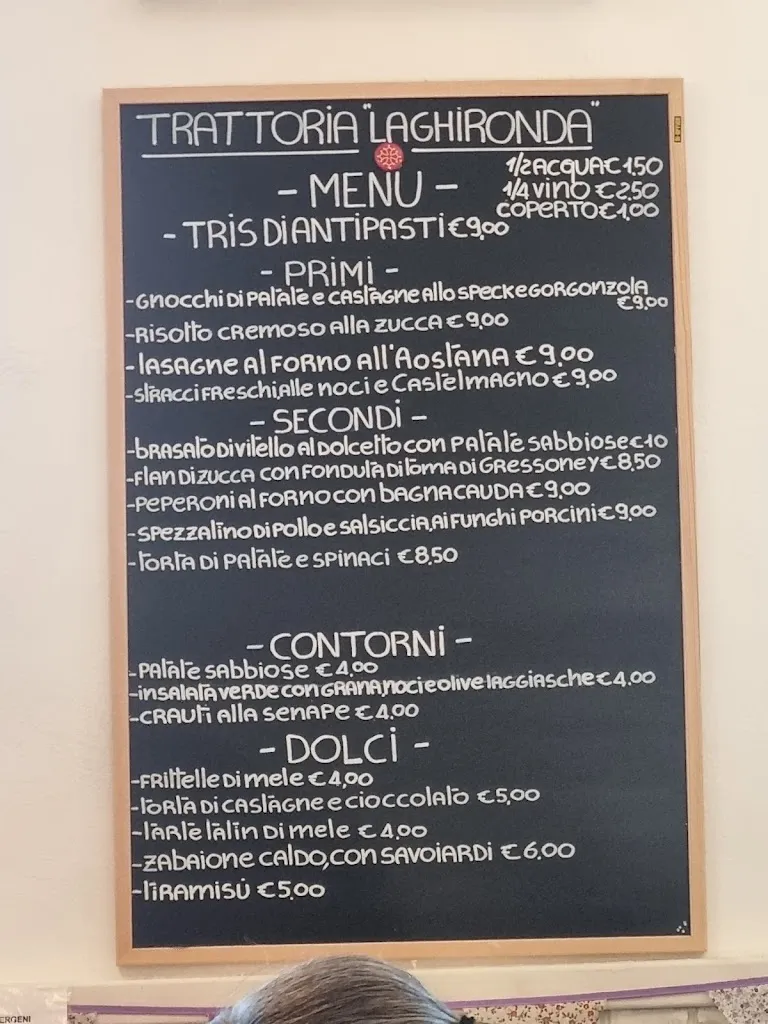 TRATTORIA "LAGHIRONDA"
1/2 ACQUA € 1.50
- MENU -
1/4 VINO € 2.50
COPERTO € 1,00
- TRIS DI ANTIPASTI € 9,00
- PRIMI -
- GNOCCHI DI PATATE E CASTAGNE ALLO SPECK E GORGONZOLA
€ 9,00
- RISOTTO CREMOSO ALLA ZUCCA € 9,00
- LASAGNE AL FORNO ALL'AOSTANA € 9,00
- STRACCI FRESCHI, ALLE NOCI E CASTELMAGNO € 9,00
- SECONDI -
- BRASATO DI VITELLO AL DOLCETTO CON PATATE SABBIOSE € 10
- FLAN DI ZUCCA CON FONDUTA DI TOMA DI GRESSONEY € 8,50
- PEPERONI AL FORNO CON BAGNA CAUDA € 9,00
- SPEZZATINO DI POLLO E SALSICCIA, AI FUNGHI PORCINI € 9,00
- TORTA DI PATATE E SPINACI € 8,50
- CONTORNI -
- PATATE SABBIOSE € 4,00
- INSALATA VERDE CON GRANA, NOCI E OLIVE TAGGIASCHE € 4,00
- CRAUTI ALLA SENAPE € 4,00
- DOLCI -
- FRITTELLE DI MELE € 4,00
- TORTA DI CASTAGNE E CIOCCOLATO € 5,00
- TARTE TATIN DI MELE € 4,00
- ZABAIONE CALDO, CON SAVOIARDI € 6,00
- TIRAMISÙ € 5,00
ERGENI